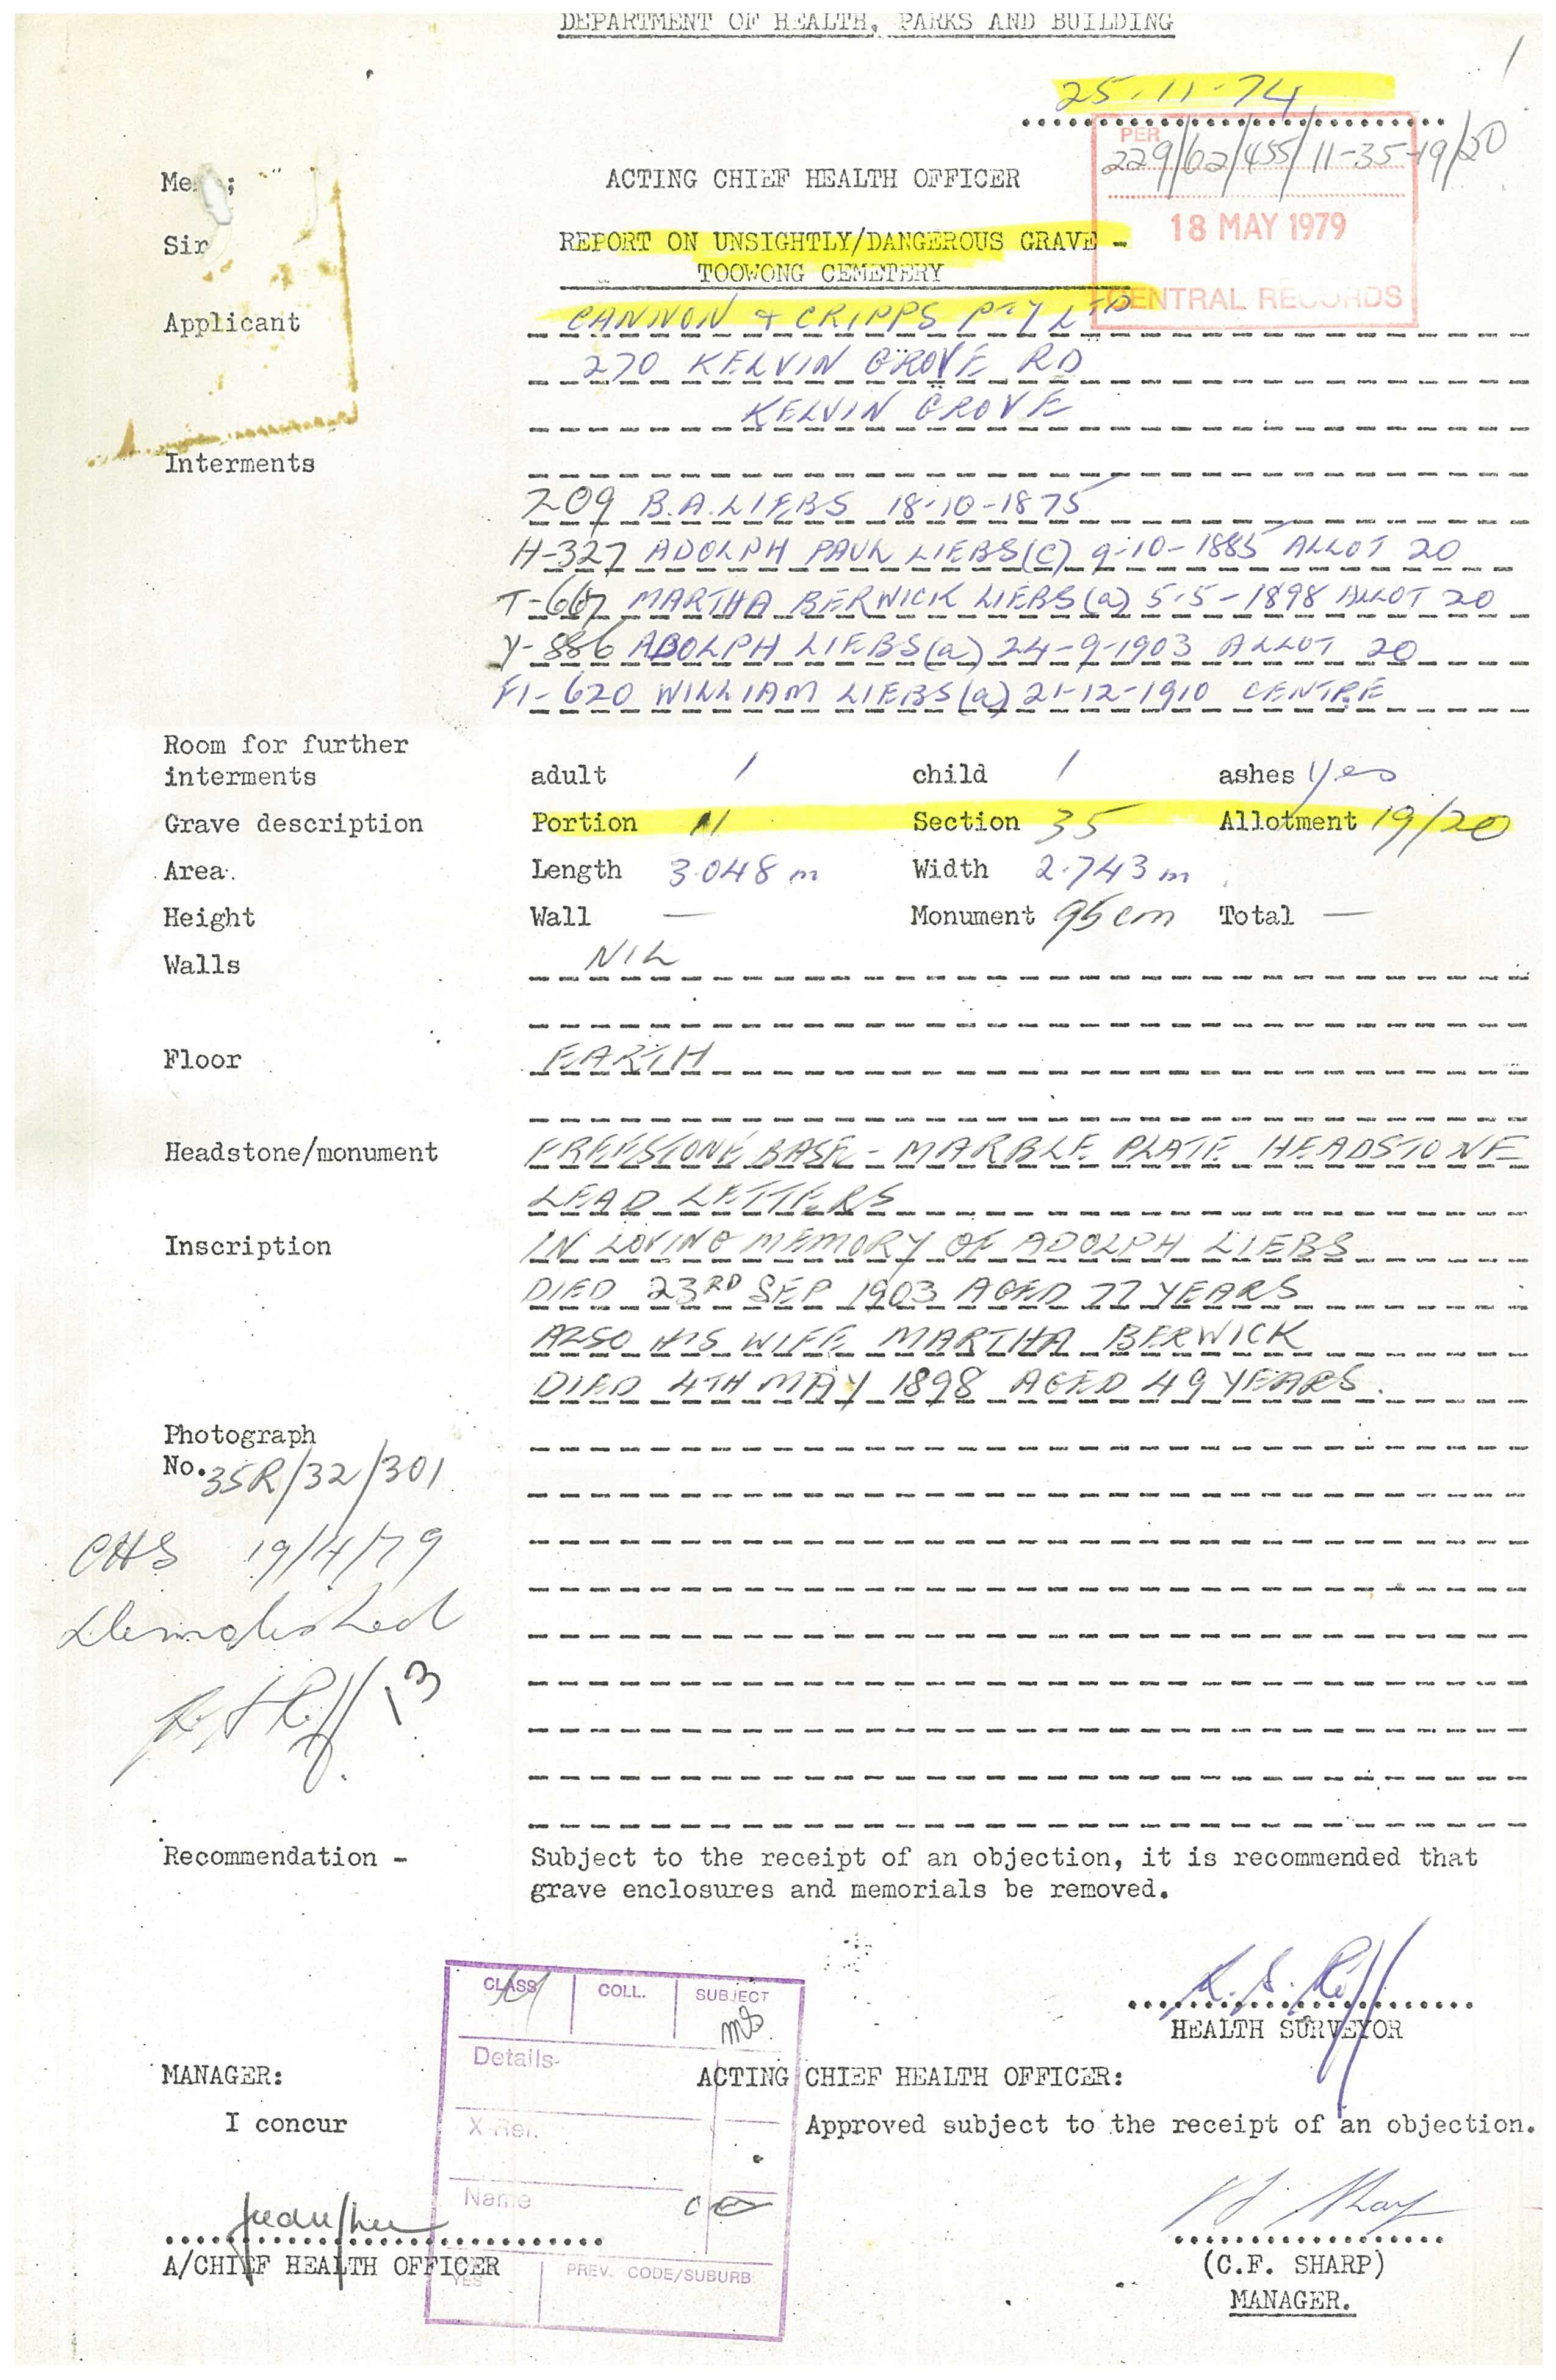 DEPARTMENT OF HEALTH, PARKS AND BUILDING
1
25.11.74
PER
229/62/455/11-35-19/20
Me ;
ACTING CHIEF HEALTH OFFICER
18 MAY 1979
Sir
REPORT ON UNSIGHTLY/DANGEROUS GRAVE -
TOOWONG CEMETERY
CENTRAL RECORDS
Applicant
CANNON & CRIPPS PTY LTD
270 KELVIN GROVE RD
KELVIN GROVE
Interments
209 B.A. LIEBS 18-10-1875
H-327 ADOLPH PAUL LIEBS (C) 9-10-1885 ALLOT 20
T-667 MARTHA BERWICK LIEBS (a) 5-5-1898 ALLOT 20
Y-886 ADOLPH LIEBS (a) 24-9-1903 ALLOT 20
F1-620 WILLIAM LIEBS (a) 21-12-1910 CENTRE
Room for further
interments adult 1 child 1 ashes yes
Grave description Portion 11 Section 35 Allotment 19/20
Area. Length 3.048 m Width 2.743 m
Height Wall — Monument 95 cm Total —
Walls NIL
Floor EARTH
Headstone/monument FREESTONE BASE - MARBLE PLATE HEADSTONE
LEAD LETTERS
Inscription IN LOVING MEMORY OF ADOLPH LIEBS
DIED 23RD SEP 1903 AGED 77 YEARS
ALSO HIS WIFE MARTHA BERWICK
DIED 4TH MAY 1898 AGED 49 YEARS.
Photograph
No. 35R/32/301
CHS 19/4/79
Demolished
13
Recommendation - Subject to the receipt of an objection, it is recommended that
grave enclosures and memorials be removed.
CLASS COLL. SUBJECT
HEALTH SURVEYOR
Details-
MANAGER: ACTING CHIEF HEALTH OFFICER:
I concur X-Ref. Approved subject to the receipt of an objection.
Name
A/CHIEF HEALTH OFFICER (C.F. SHARP)
YES PREV. CODE/SUBURB
MANAGER.